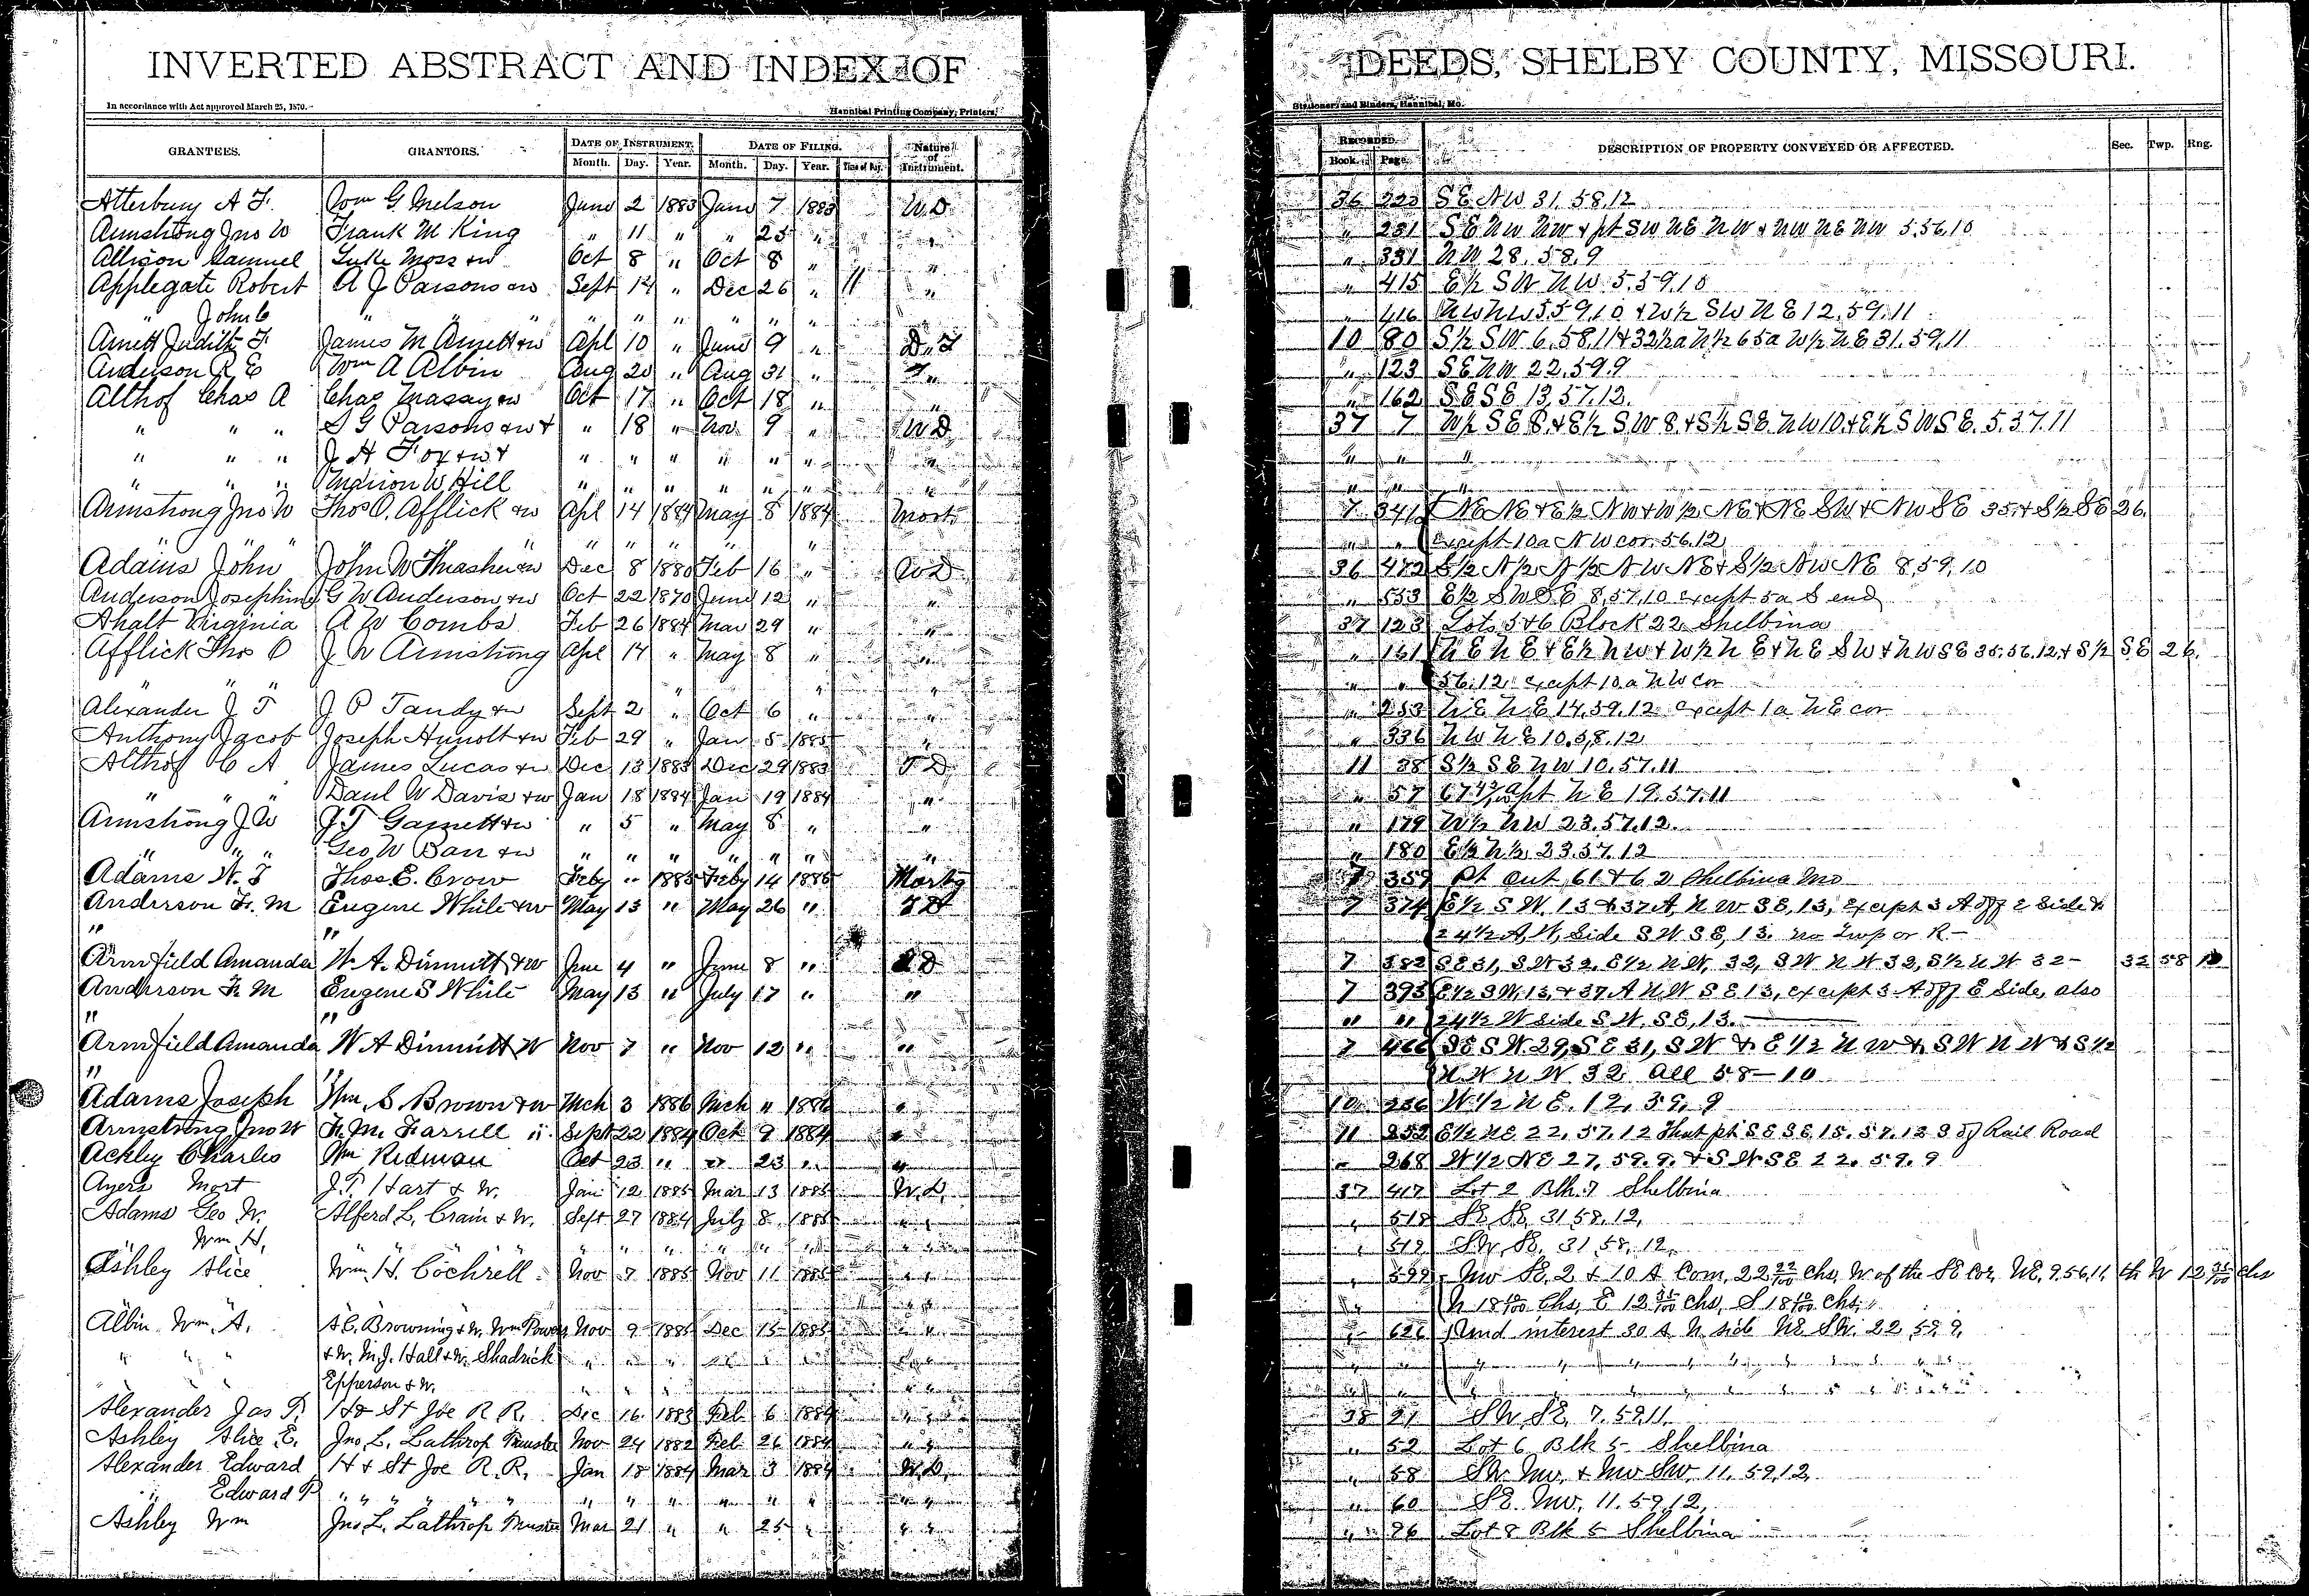 INVERTED ABSTRACT AND INDEX OF DEEDS, SHELBY COUNTY, MISSOURI.
In accordance with Act approved March 25, 1870.
Hannibal Printing Company, Printers,
Stationers and Binders, Hannibal, Mo.
GRANTEES. GRANTORS. DATE OF INSTRUMENT. DATE OF FILING. Nature of Instrument. RECORDED. DESCRIPTION OF PROPERTY CONVEYED OR AFFECTED. Sec. Twp. Rng.
Month. Day. Year. Month. Day. Year. Time of Day. Book. Page.
Atterbury A F. Wm G. Melson June 2 1883 June 7 1883 W.D. 36 223 SE NW 31, 58, 12
Armstrong Jno W Frank M King " 11 " " 25 " " " 231 SE NW NW & pt SW NE NW & NW NE NW 5.56.10
Allison Samuel Luke Moss & w Oct 8 " Oct 8 " " " 331 NW 28. 58. 9
Applegate Robert A J Parsons & w Sept 14 " Dec 26 " 11 " " 415 E½ SW NW. 5.59.10
" John C " " " " " " " " " " 416 NW NW 5 59.10 & W½ SW NE 12.59.11
Arnett Judith F. James M Arnett & w Apl 10 " June 9 " D.T 10 80 S½ SW 6.58.11 & 32½a N½ 65a W½ NE 31.59.11
Anderson R E Wm A Albin Aug 20 " Aug 31 " " " 123 SE NW 22.59.9
Althof Chas A Chas Massay & w Oct 17 " Oct 18 " " " 162 SE SE 13.57.12.
" " " S G Parsons & w & " 18 " Nov 9 " W D 37 7 W½ SE 8. & E½ SW 8. & S½ SE NW 10. & E½ SW SE. 5. 37. 11
" " " J H Fox & w & " " " " " " " " " "
" " " Marion W Hill " " " " " " " " " "
Armstrong Jno W Thos O. Afflick & w Apl 14 1884 May 8 1884 Mort 7 341 NE NE & E½ NW & W½ NE & NE SW & NW SE 35. & S½ SE 26.
" " " " " " " " Except 10a NW cor. 56.12
Adams John John W Thrasher & w Dec 8 1880 Feb 16 " W.D 36 472 S½ N½ N½ NW NE & S½ NW NE 8,59,10
Anderson Josephine G W Anderson & w Oct 22 1870 June 12 " " " 553 E½ SW SE 8,57,10 except 5a S end
Ahalt Virginia A W Combs Feb 26 1884 Mar 29 " " 37 123 Lots 5&6 Block 22 Shelbina
Afflick Thos O J W Armstrong Apl 14 " May 8 " " " 161 NE NE & E½ NW & W½ NE & NE SW & NW SE 35.56.12, & S½ SE 26.
" " " " " " 56.12 except 10.a NW cor
Alexander J T J P Tandy & w Sept 2 " Oct 6 " " " 253 NE NE 14,59,12 except 1a NE cor
Anthony Jacob Joseph Hunolt & w Feb 29 " Jan 5 1885 " " 336 NW NE 10.58.12
Althof C A James Lucas & w Dec 13 1883 Dec 29 1883 T D 11 38 S½ SE NW 10.57.11
" " " Danl W Davis & w Jan 18 1884 Jan 19 1884 " " 57 pt NE 19.57.11
Armstrong J W J T Garnett & w " 5 " May 8 " " " 179 W½ NW 23.57.12.
" " " Geo W Barr & w " " " " " " " " 180 E½ N½ 23.57.12
Adams W. T Thos E. Crow Feby " 1885 Feby 14 1885 Mortg 7 359 Pt Out, 61 & 62 Shelbina Mo
Anderson F. M Eugene White & w May 13 " May 26 " T D 7 374 E½ S W. 13 & 37 A, N W S E, 13, except 3 A off E Side &
" " 24½ A, W, Side S W S E, 13. no Twp or R.—
Armfield Amanda W. A. Dimmitt & w June 4 " June 8 " T D 7 382 S E 31, S W 32, E½ N W, 32, S W N W 32, S½ N W 32 — 32 58 10
Anderson F. M Eugene S White May 13 " July 17 " " 7 393 E½ S W, 13, & 37 A N W S E 13, except 3 A off E Side, also
" " " " 24½ W side S W, S E, 13.
Armfield Amanda W A Dimmitt W Nov 7 " Nov 12 " " 7 466 SE S W 29, S E 31, S W & E½ N W & S W N W & S½
" " N W N W 32 All 58—10
Adams Joseph Wm, S Brown & w Mch 3 1886 Mch " 1886 " 10 236 W½ N E. 12, 59, 9
Armstrong Jno W F. M. Farrell " Sept 22 1884 Oct 9 1884 " 11 252 E½ NE 22, 57, 12 That pt S E S E 15. 57. 12 S of Rail Road
Ackley Charles Wm Redman Oct 23 " " 23 " " " 268 W½ NE 27, 59. 9. & S W S E 22. 59. 9
Ayers Mort J. P. Hart & W. Jan 12 1885 Mar 13 1885 W.D. 37 417 Lot 2 Blk. 7 Shelbina
Adams Geo W. Alferd L. Crain & W. Sept 27 1884 July 8 1885 " " " 518 SE SE, 31 58, 12,
Wm, H, " " " " " " " " " 519 SW, SE, 31, 58, 12,
Ashley Alice Wm, H. Cochrell Nov 7 1885 Nov 11 1885 " " " 599 NW SE, 2 & 10 A Com, 22 22/100 chs, W of the SE Cor, NE, 9.56,11, th W 12 35/100 chs
N 18 10/100 Chs, E 12 35/100 chs, S 18 10/100 Chs,
Albin Wm, A. A. C. Browning & W. Wm Powers Nov 9 1885 Dec 15 1885 " " " 626 Und interest 30 A N side NE SW. 22, 59, 9,
" " " & W. M. J. Hall & W. Shadrick " " " " " " " "
" " Epperson & W. " " "
Alexander Jas P. H & St Joe R R. Dec 16 1883 Feb 6 1884 " " 38 21 SW SE, 7, 59.11,
Ashley Alice E. Jno, L. Lathrop Trustee Nov 24 1882 Feb 26 1884 " " " 52 Lot 6 Blk 5 Shelbina
Alexander Edward H & St Joe R. R. Jan 18 1884 Mar 3 1884 W.D. " 58 SW NW, & NW SW, 11, 59,12,
" Edward P " " " " " " " " " " " " 60 SE. NW, 11. 59 12,
Ashley Wm Jno L. Lathrop Trustee Mar 21 " " 25 " " " " 86 Lot 8 Blk 5 Shelbina